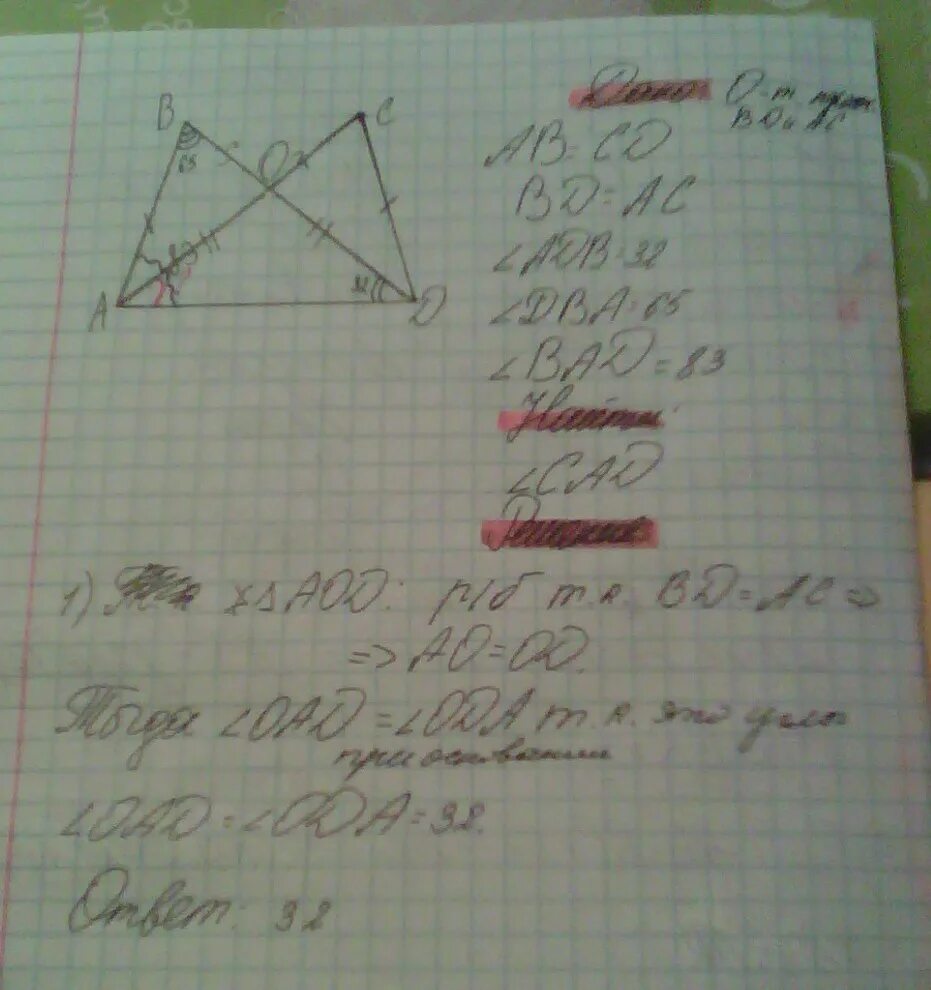 B
C
65
O
83
A
32
D
Дано О-т. перес.
BD и AC
AB=CD
BD=AC
∠ADB=32
∠DBA=65
∠BAD=83
Найти:
∠CAD
Решение
1) x ΔAOD: р/б т.к. BD=AC =>
=> AO=OD.
Тогда ∠OAD=∠ODA т.к. это углы
при основании
∠OAD=∠ODA=32.
Ответ: 32